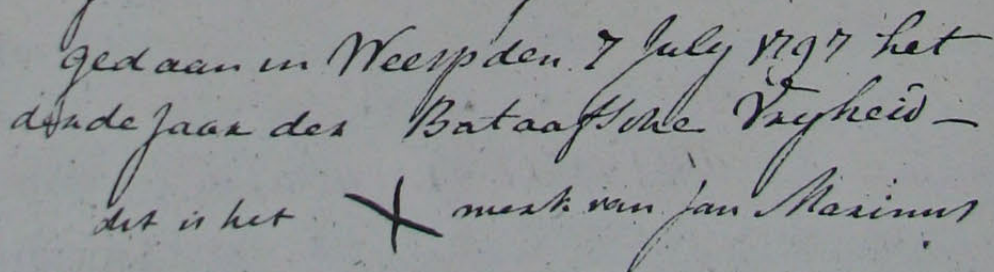 gedaan in Weesp den 7 July 1797 het
derde Jaar der Bataafsche Vryheid –
dit is het X merk van Jan Marinus